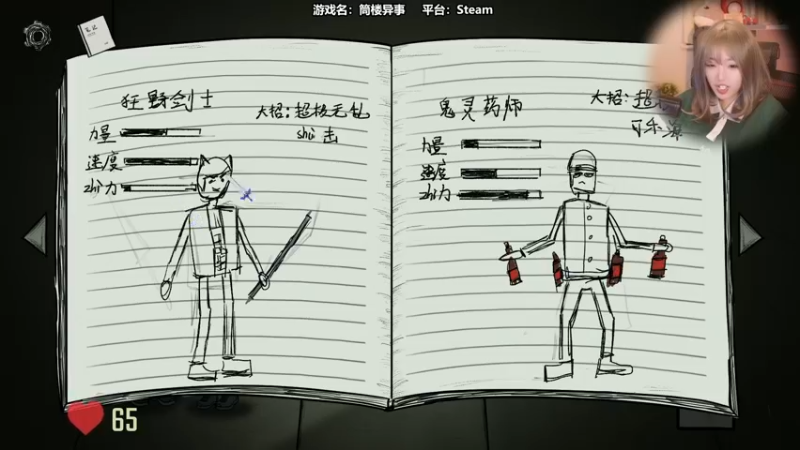 游戏名：筒楼异事 平台：Steam
笔记
狂野剑士
大招：超极无乱
shǐ 击
力量
速度
zhì力
鬼灵药师
大招：超
可乐
力量
速度
zhì力
65